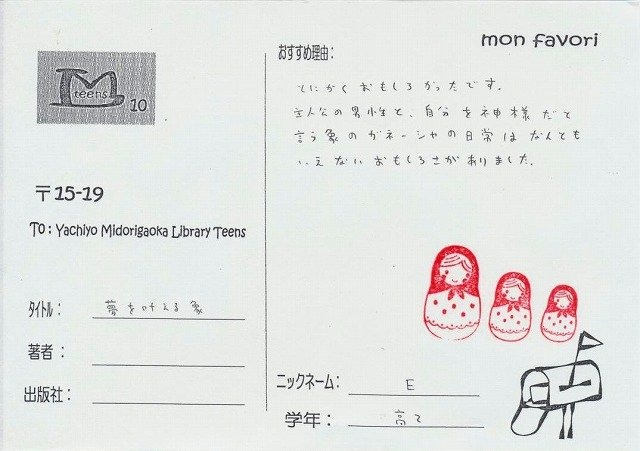 mon favori
teens
10
〒15-19
To: Yachiyo Midorigaoka Library Teens
タイトル： 夢を叶える象
著者：
出版社：
おすすめ理由：
とにかくおもしろかったです。
主人公の男性と、自分を神様だと
言う象のガネーシャの日常はなんとも
いえないおもしろさがありました。
ニックネーム： E
学年： 高2